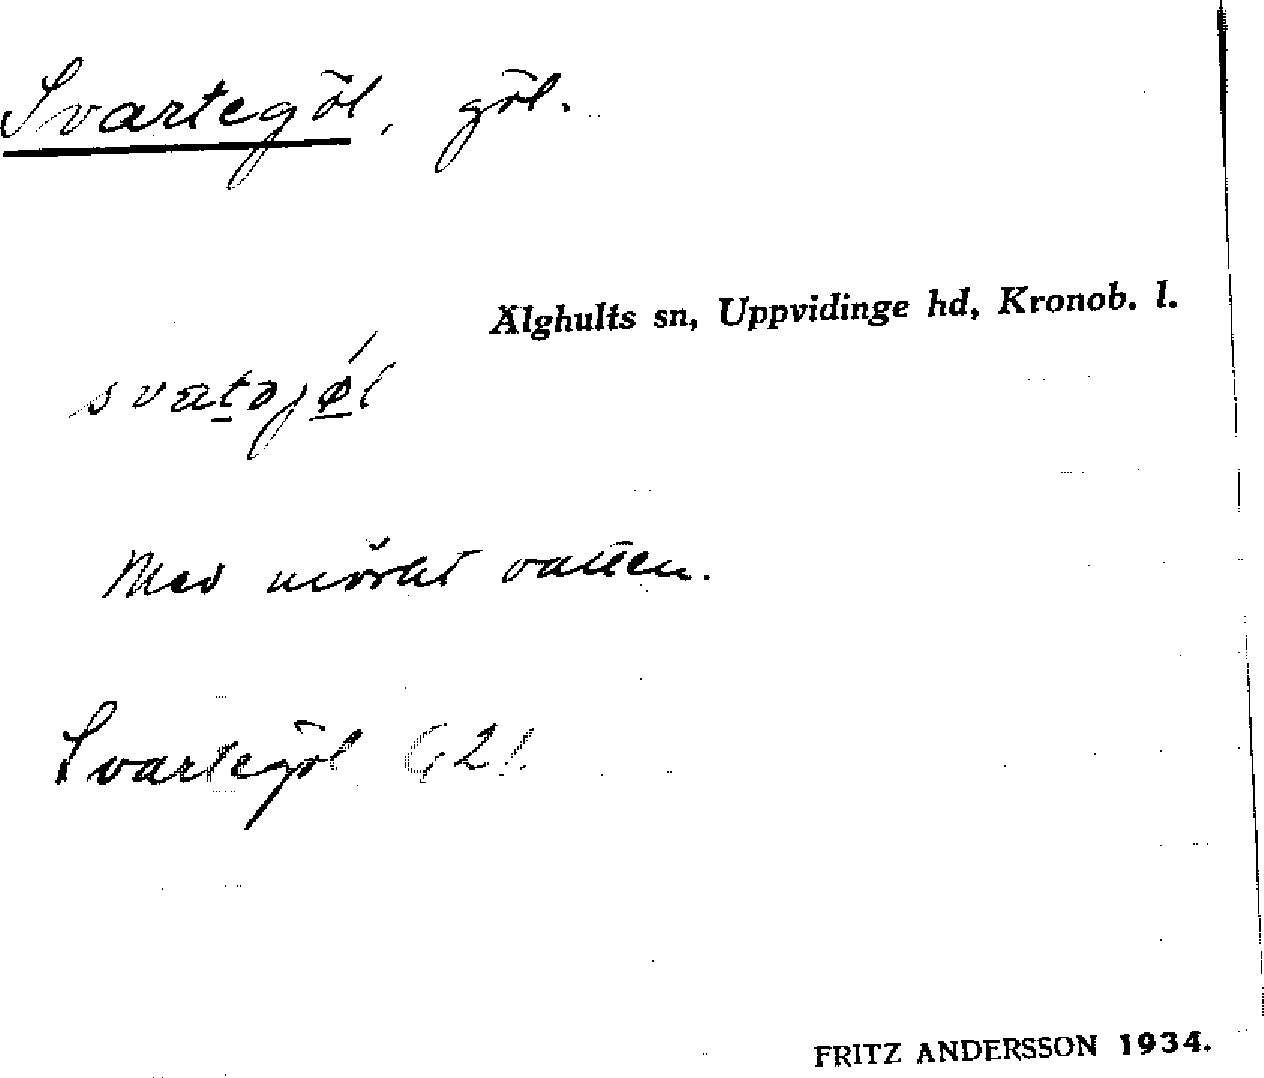 Svartegöl, göl.
Älghults sn, Uppvidinge hd, Kronob. l.
Med mörkt vatten.
Svartegöl G2!
FRITZ ANDERSSON 1934.